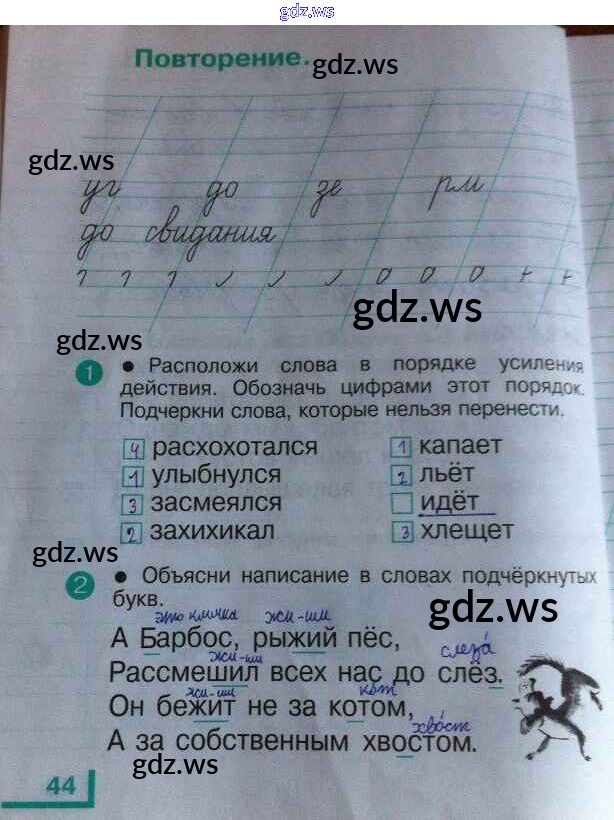 gdz.ws
Повторение.
gdz.ws
gdz.ws
уг до зе рм
до свидания
gdz.ws
gdz.ws
1 • Расположи слова в порядке усиления
действия. Обозначь цифрами этот порядок.
Подчеркни слова, которые нельзя перенести.
4 расхохотался 1 капает
1 улыбнулся 2 льёт
3 засмеялся идёт
2 захихикал 3 хлещет
gdz.ws
2 • Объясни написание в словах подчёркнутых
букв.
gdz.ws
это кличка жи-ши
А Барбос, рыжий пёс,
жи-ши слеза́
Рассмешил всех нас до слёз.
жи-ши кот
Он бежит не за котом,
хво́ст
А за собственным хвостом.
gdz.ws
44